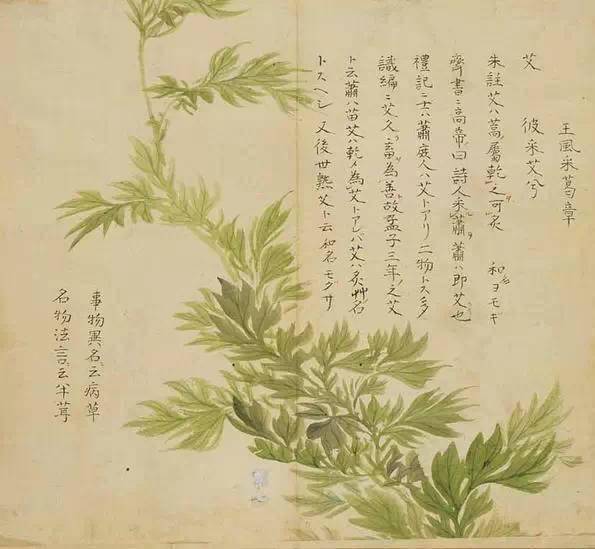 王風采葛章
艾 彼采艾兮
朱註艾ハ蒿屬乾之可灸 和名ヨモギ
齊書ニ高帝曰詩人采蕭蕭ハ即艾也
禮記ニ士ハ蕭庶人ハ艾トアリ二物トス
識編ニ艾久畜為善故孟子三年之艾
ト云蕭ハ苗艾ハ乾〆為艾トアレバ艾ハ灸艸名
トスヘシ 又後世熟艾ト云 和名モクサ
事物異名ニ云病草
名物法言ニ云半茸